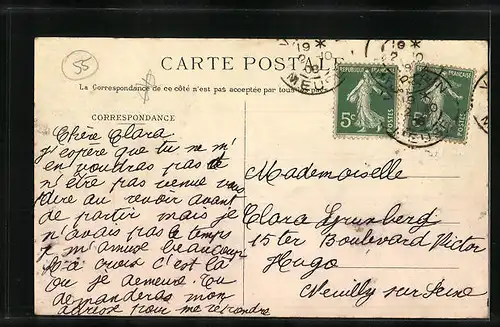 55
CARTE POSTALE
La Correspondance de ce côté n'est pas acceptée par tous les pays
CORRESPONDANCE
Chère Clara
j'espère que tu ne m'
en voudras pas de
n'être pas venue vous
dire au revoir avant
de partir mais je
n'avais pas le temps
je m'amuse beaucoup
la croix c'est là
ou je demeure. Tu
demanderas mon
adresse pour me répondre
Mademoiselle
Clara Grunberg
15 ter Boulevard Victor
Hugo
Neuilly sur Seine
REPUBLIQUE FRANÇAISE
5c
POSTES